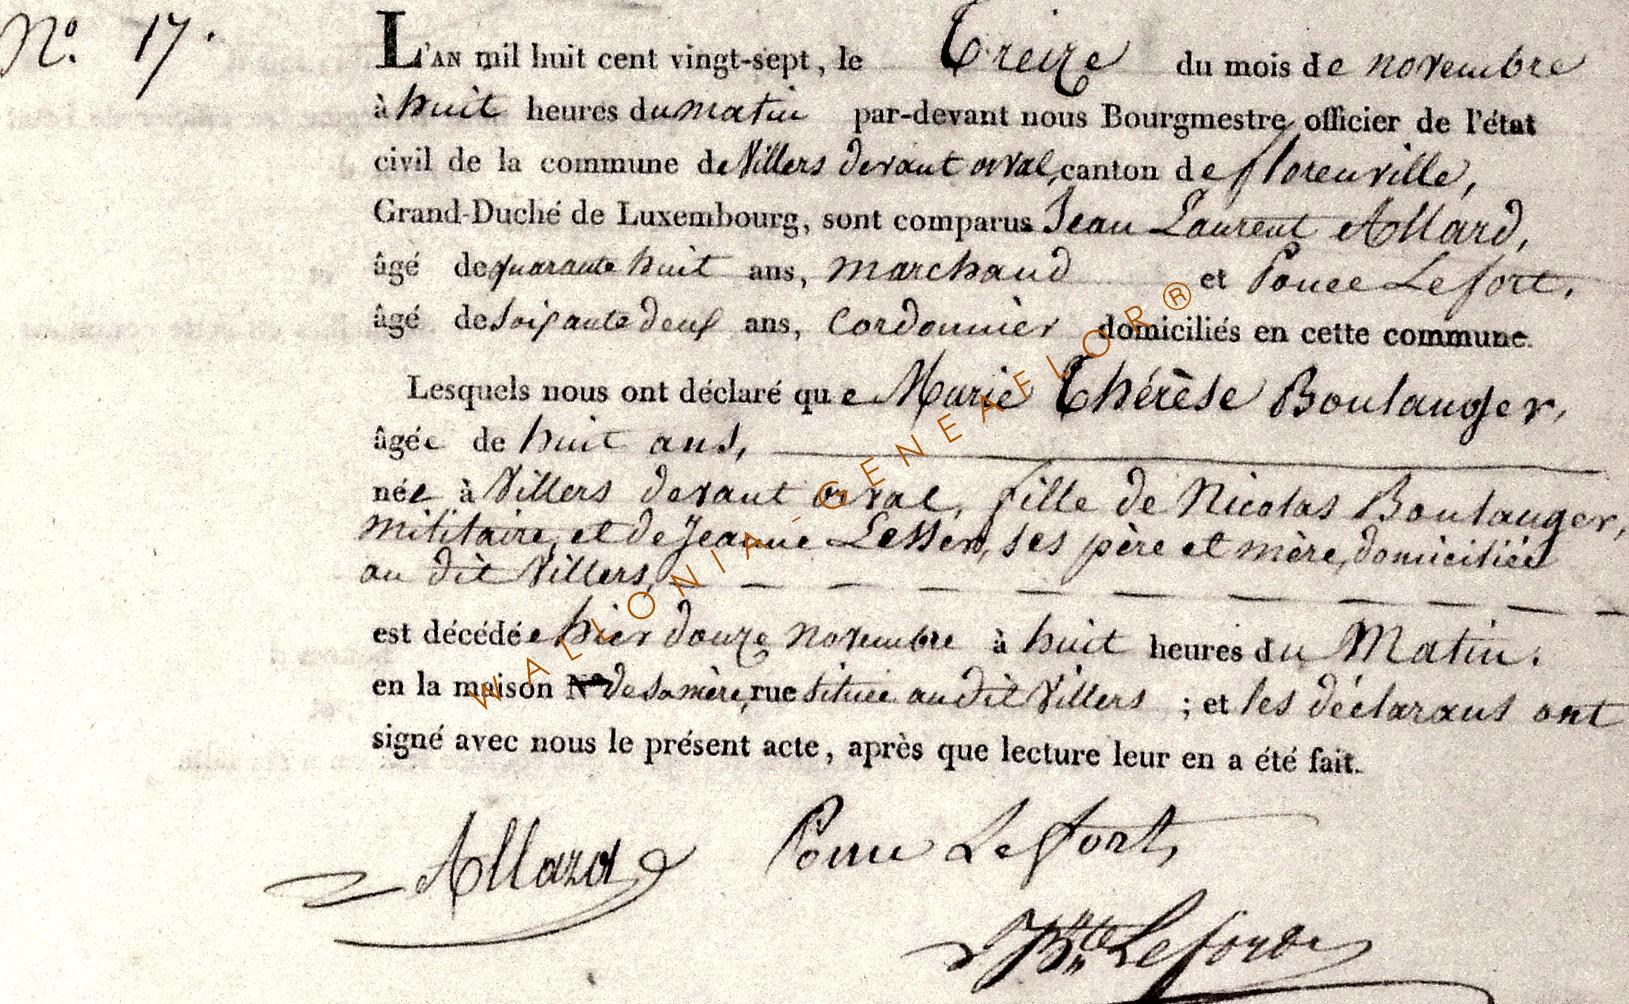 N.o 17.
L'AN mil huit cent vingt-sept, le Treize du mois de novembre
à huit heures du matin par-devant nous Bourgmestre officier de l'état
civil de la commune de Villers devant orval, canton de florenville,
Grand-Duché de Luxembourg, sont comparus Jean Laurent Allard,
âgé de quarante huit ans, marchand et Ponce Lefort,
âgé de soixante deux ans, Cordonnier domiciliés en cette commune.
Lesquels nous ont déclaré que Marie Thérèse Boulanger,
âgée de huit ans,
née à Villers devant orval, fille de Nicolas Boulanger,
militaire, et de Jeanne ses père et mère, domiciliée
au dit Villers,
est décédée hier douze novembre à huit heures du Matin.
en la maison N.o de sa mère, rue située au dit Villers ; et les déclarans ont
signé avec nous le présent acte, après que lecture leur en a été fait.
Allard Ponce Lefort,
WALLONIA-GENEAFLOR®